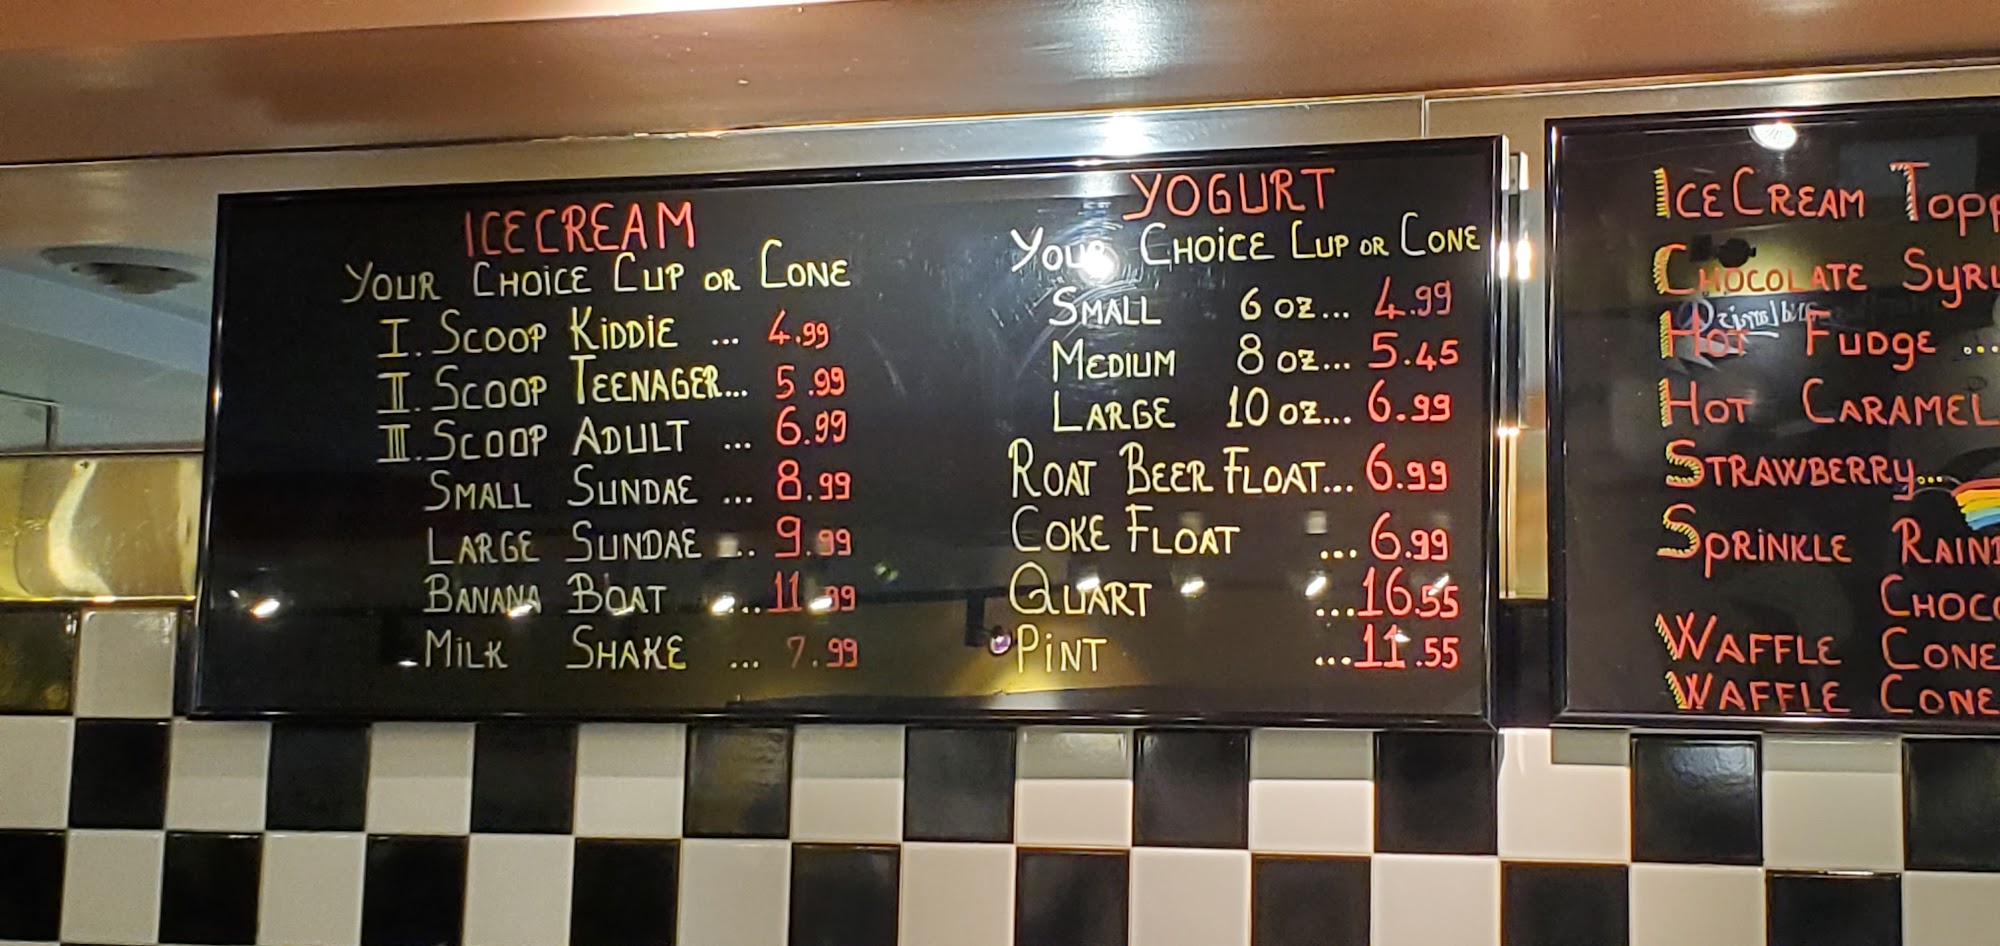 ICE CREAM
YOUR CHOICE CUP OR CONE
I. SCOOP KIDDIE ... 4.99
II. SCOOP TEENAGER... 5.99
III. SCOOP ADULT ... 6.99
SMALL SUNDAE ... 8.99
LARGE SUNDAE ... 9.99
BANANA BOAT ... 11.99
MILK SHAKE ... 7.99
YOGURT
YOUR CHOICE CUP OR CONE
SMALL 6 OZ... 4.99
MEDIUM 8 OZ... 5.45
LARGE 10 OZ... 6.99
ROAT BEER FLOAT... 6.99
COKE FLOAT ... 6.99
QUART ...16.55
PINT ...11.55
ICE CREAM TOPP
CHOCOLATE SYRU
HOT FUDGE ...
HOT CARAMEL
STRAWBERRY...
SPRINKLE RAIN
CHOCO
WAFFLE CONE
WAFFLE CONE